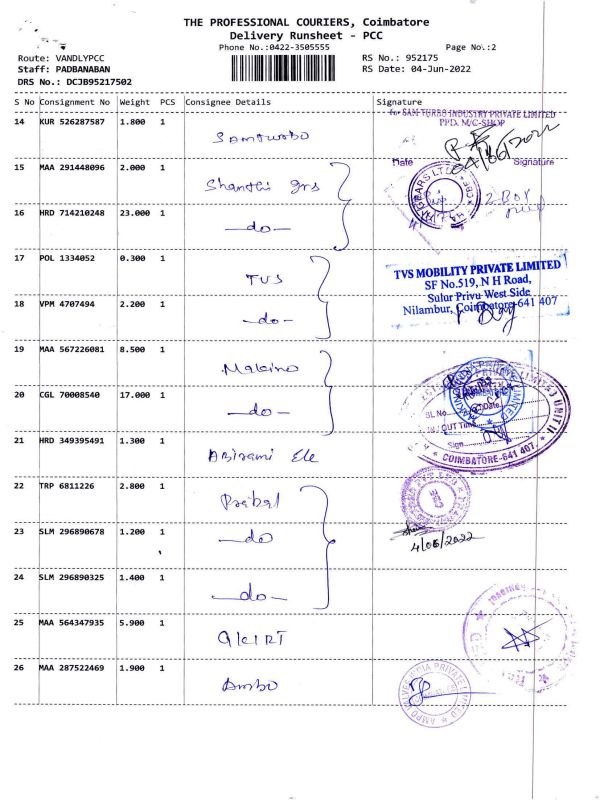 THE PROFESSIONAL COURIERS, Coimbatore
Delivery Runsheet - PCC
Phone No.:0422-3505555
Page No.:2
Route: VANDLYPCC
RS No.: 952175
Staff: PADBANABAN
RS Date: 04-Jun-2022
DRS No.: DCJB95217502
S No Consignment No Weight PCS Consignee Details Signature
for SAM TURBO INDUSTRY PRIVATE LIMITED
PPD. M/C-SHOP
14 KUR 526287587 1.800 1
Samturbo
04/06/2022
Date Signature
15 MAA 291448096 2.000 1
Shanthi grs
2 Box
16 HRD 714210248 23.000 1
-do-
17 POL 1334052 0.300 1
TVS
TVS MOBILITY PRIVATE LIMITED
SF No.519, N H Road,
Sulur Privu West Side
Nilambur, Coimbatore-641 407
18 VPM 4707494 2.200 1
-do-
19 MAA 567226081 8.500 1
Makino
20 CGL 70008540 17.000 1
-do-
SL No. Date
IN / OUT Time
Sign
COIMBATORE-641 407.
21 HRD 349395491 1.300 1
Abirami Ele
22 TRP 6811226 2.800 1
Prabal
23 SLM 296890678 1.200 1
-do
4/06/2022
24 SLM 296890325 1.400 1
-do-
25 MAA 564347935 5.900 1
26 MAA 287522469 1.900 1
Ambo